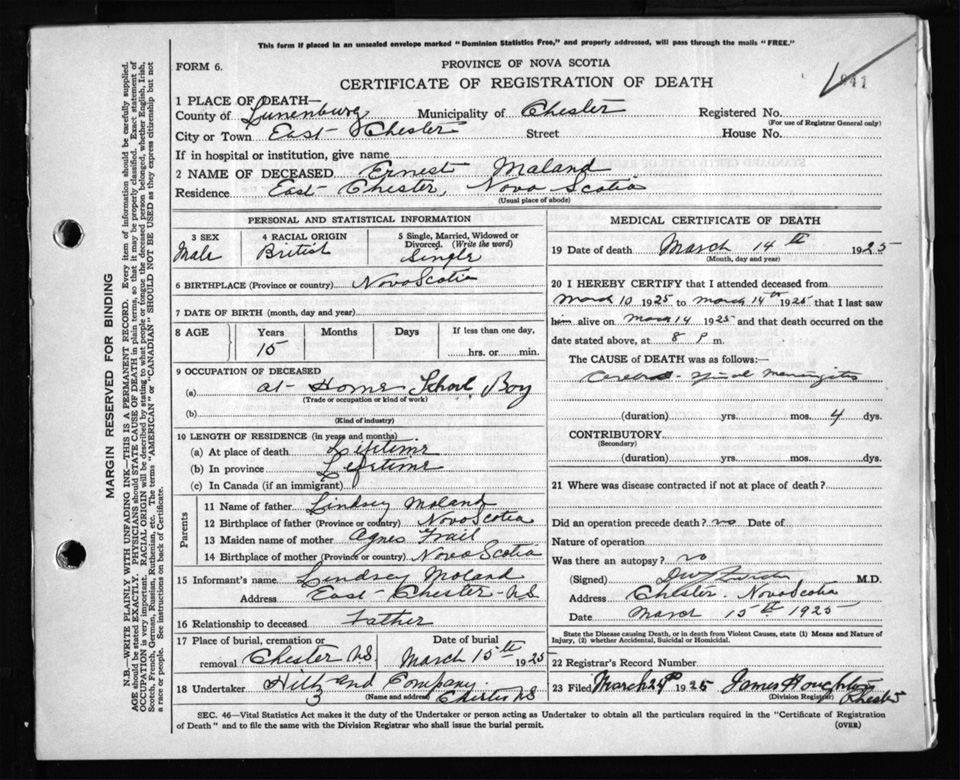 This form if placed in an unsealed envelope marked "Dominion Statistics Free," and properly addressed, will pass through the mails "FREE."
FORM 6.
PROVINCE OF NOVA SCOTIA
CERTIFICATE OF REGISTRATION OF DEATH
841
1 PLACE OF DEATH—
County of Lunenburg Municipality of Chester Registered No.
(For use of Registrar General only)
City or Town East Chester Street House No.
If in hospital or institution, give name
2 NAME OF DECEASED Ernest Moland
Residence East Chester, Nova Scotia
(Usual place of abode)
PERSONAL AND STATISTICAL INFORMATION
3 SEX
Male
4 RACIAL ORIGIN
British
5 Single, Married, Widowed or Divorced. (Write the word)
Single
6 BIRTHPLACE (Province or country) Nova Scotia
7 DATE OF BIRTH (month, day and year)
8 AGE Years Months Days If less than one day,
15 hrs. or min.
9 OCCUPATION OF DECEASED
(a) at Home School Boy
(Trade or occupation or kind of work)
(b)
(Kind of industry)
10 LENGTH OF RESIDENCE (in years and months)
(a) At place of death Lifetime
(b) In province Lifetime
(c) In Canada (if an immigrant)
Parents
11 Name of father Lindsey Moland
12 Birthplace of father (Province or country) Nova Scotia
13 Maiden name of mother Agnes Frail
14 Birthplace of mother (Province or country) Nova Scotia
15 Informant's name Lindsey Moland
Address East Chester NS
16 Relationship to deceased Father
17 Place of burial, cremation or removal Chester NS
Date of burial
March 15th 1925
18 Undertaker and Company
(Name and address) Chester NS
MEDICAL CERTIFICATE OF DEATH
19 Date of death March 14th 1925
(Month, day and year)
20 I HEREBY CERTIFY that I attended deceased from
March 10 1925 to March 14th 1925 that I last saw
him alive on March 14 1925 and that death occurred on the
date stated above, at 8 P m.
The CAUSE of DEATH was as follows:—
Cerebro-Spinal Meningitis
(duration) yrs. mos. 4 dys.
CONTRIBUTORY
(Secondary)
(duration) yrs. mos. dys.
21 Where was disease contracted if not at place of death?
Did an operation precede death? no Date of
Nature of operation
Was there an autopsy? no
(Signed) M.D.
Address Chester. Nova Scotia
Date March 15th 1925
State the Disease causing Death, or in death from Violent Causes, state (1) Means and Nature of
Injury, (2) whether Accidental, Suicidal or Homicidal.
22 Registrar's Record Number
23 Filed March 29th 1925 James Houghton
(Division Registrar) Chester
SEC. 46—Vital Statistics Act makes it the duty of the Undertaker or person acting as Undertaker to obtain all the particulars required in the "Certificate of Registration
of Death" and to file the same with the Division Registrar who shall issue the burial permit.
(OVER)
MARGIN RESERVED FOR BINDING
N.B.—WRITE PLAINLY WITH UNFADING INK—THIS IS A PERMANENT RECORD. Every item of information should be carefully supplied.
AGE should be stated EXACTLY. PHYSICIANS should STATE CAUSE OF DEATH in plain terms, so that it may be properly classified. Exact statement of
OCCUPATION is very important. RACIAL ORIGIN will be described by stating to what people or tongue the deceased person belonged, whether English, Irish,
Scotch, French, German, Russian, Ruthenian, etc. The terms "AMERICAN" or "CANADIAN" SHOULD NOT BE USED as they express citizenship but not
a race or people. See instructions on back of Certificate.